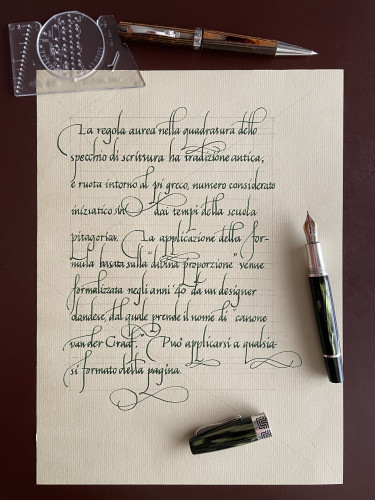 La regola aurea nella quadratura dello
specchio di scrittura ha tradizione antica,
e ruota intorno al pi greco, numero considerato
iniziatico sin dai tempi della scuola
pitagorica. La applicazione della for-
mula basata sulla "divina proporzione" venne
formalizzata negli anni '40 da un designer
olandese, dal quale prende il nome di "canone
van der Graaf". Può applicarsi a qualsia-
si formato della pagina.